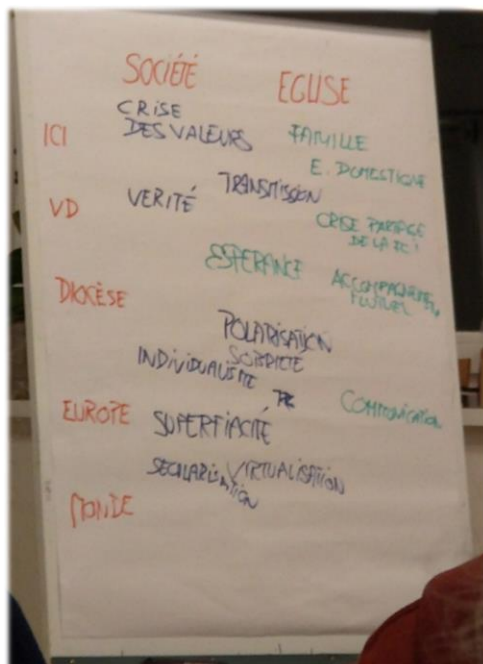 SOCIÉTÉ EGLISE
CRISE
ICI DES VALEURS FAMILLE
E. DOMESTIQUE
TRANSMISSION
VD VERITÉ
CRISE PARTAGE
DE LA FOI
ESPERANCE
ACCOMPAGNEMEN
MUTUEL
DIOCÈSE
POLARISATION
SOBRIETE
INDIVIDUALISME
COMMUNICATION
EUROPE SUPERFIACITÉ
SECULARISATION VIRTUALISATION
MONDE